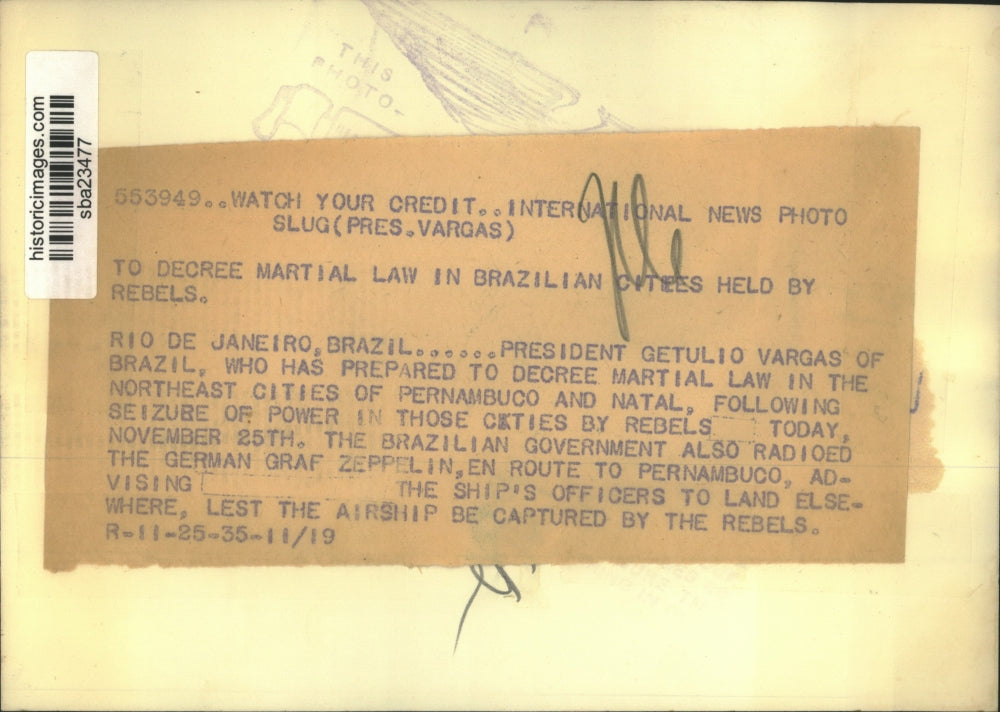 THIS
PHOTO-
historicimages.com
sba23477
553949..WATCH YOUR CREDIT..INTERNATIONAL NEWS PHOTO
SLUG(PRES.VARGAS)
TO DECREE MARTIAL LAW IN BRAZILIAN CITEES HELD BY
REBELS.
RIO DE JANEIRO,BRAZIL......PRESIDENT GETULIO VARGAS OF
BRAZIL, WHO HAS PREPARED TO DECREE MARTIAL LAW IN THE
NORTHEAST CITIES OF PERNAMBUCO AND NATAL, FOLLOWING
SEIZURE OF POWER IN THOSE CKTIES BY REBELS TODAY,
NOVEMBER 25TH. THE BRAZILIAN GOVERNMENT ALSO RADIOED
THE GERMAN GRAF ZEPPELIN,EN ROUTE TO PERNAMBUCO, AD-
VISING THE SHIP'S OFFICERS TO LAND ELSE-
WHERE, LEST THE AIRSHIP BE CAPTURED BY THE REBELS.
R-11-25-35-11/19